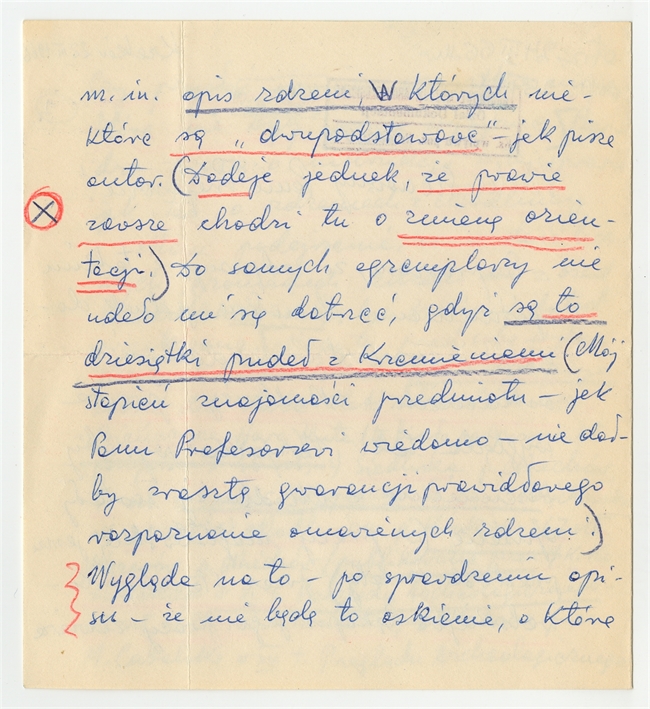 m. in. opis rdzeni, w których nie-
które są „dwupodstawowe" – jak pisze
autor. (Dodaje jednak, że prawie
zawsze chodzi tu o zmianę orien-
tacji.) Do samych egzemplarzy nie
udało mi się dotrzeć, gdyż są to
dziesiątki pudeł z krzemieniami (Mój
stopień znajomości przedmiotu – jak
Panu Profesorowi wiadomo – nie dał-
by zresztą gwarancji prawidłowego
rozpoznania omawianych rdzeni.)
Wygląda na to – po sprawdzeniu opi-
su – że nie będą to oskienie, o które